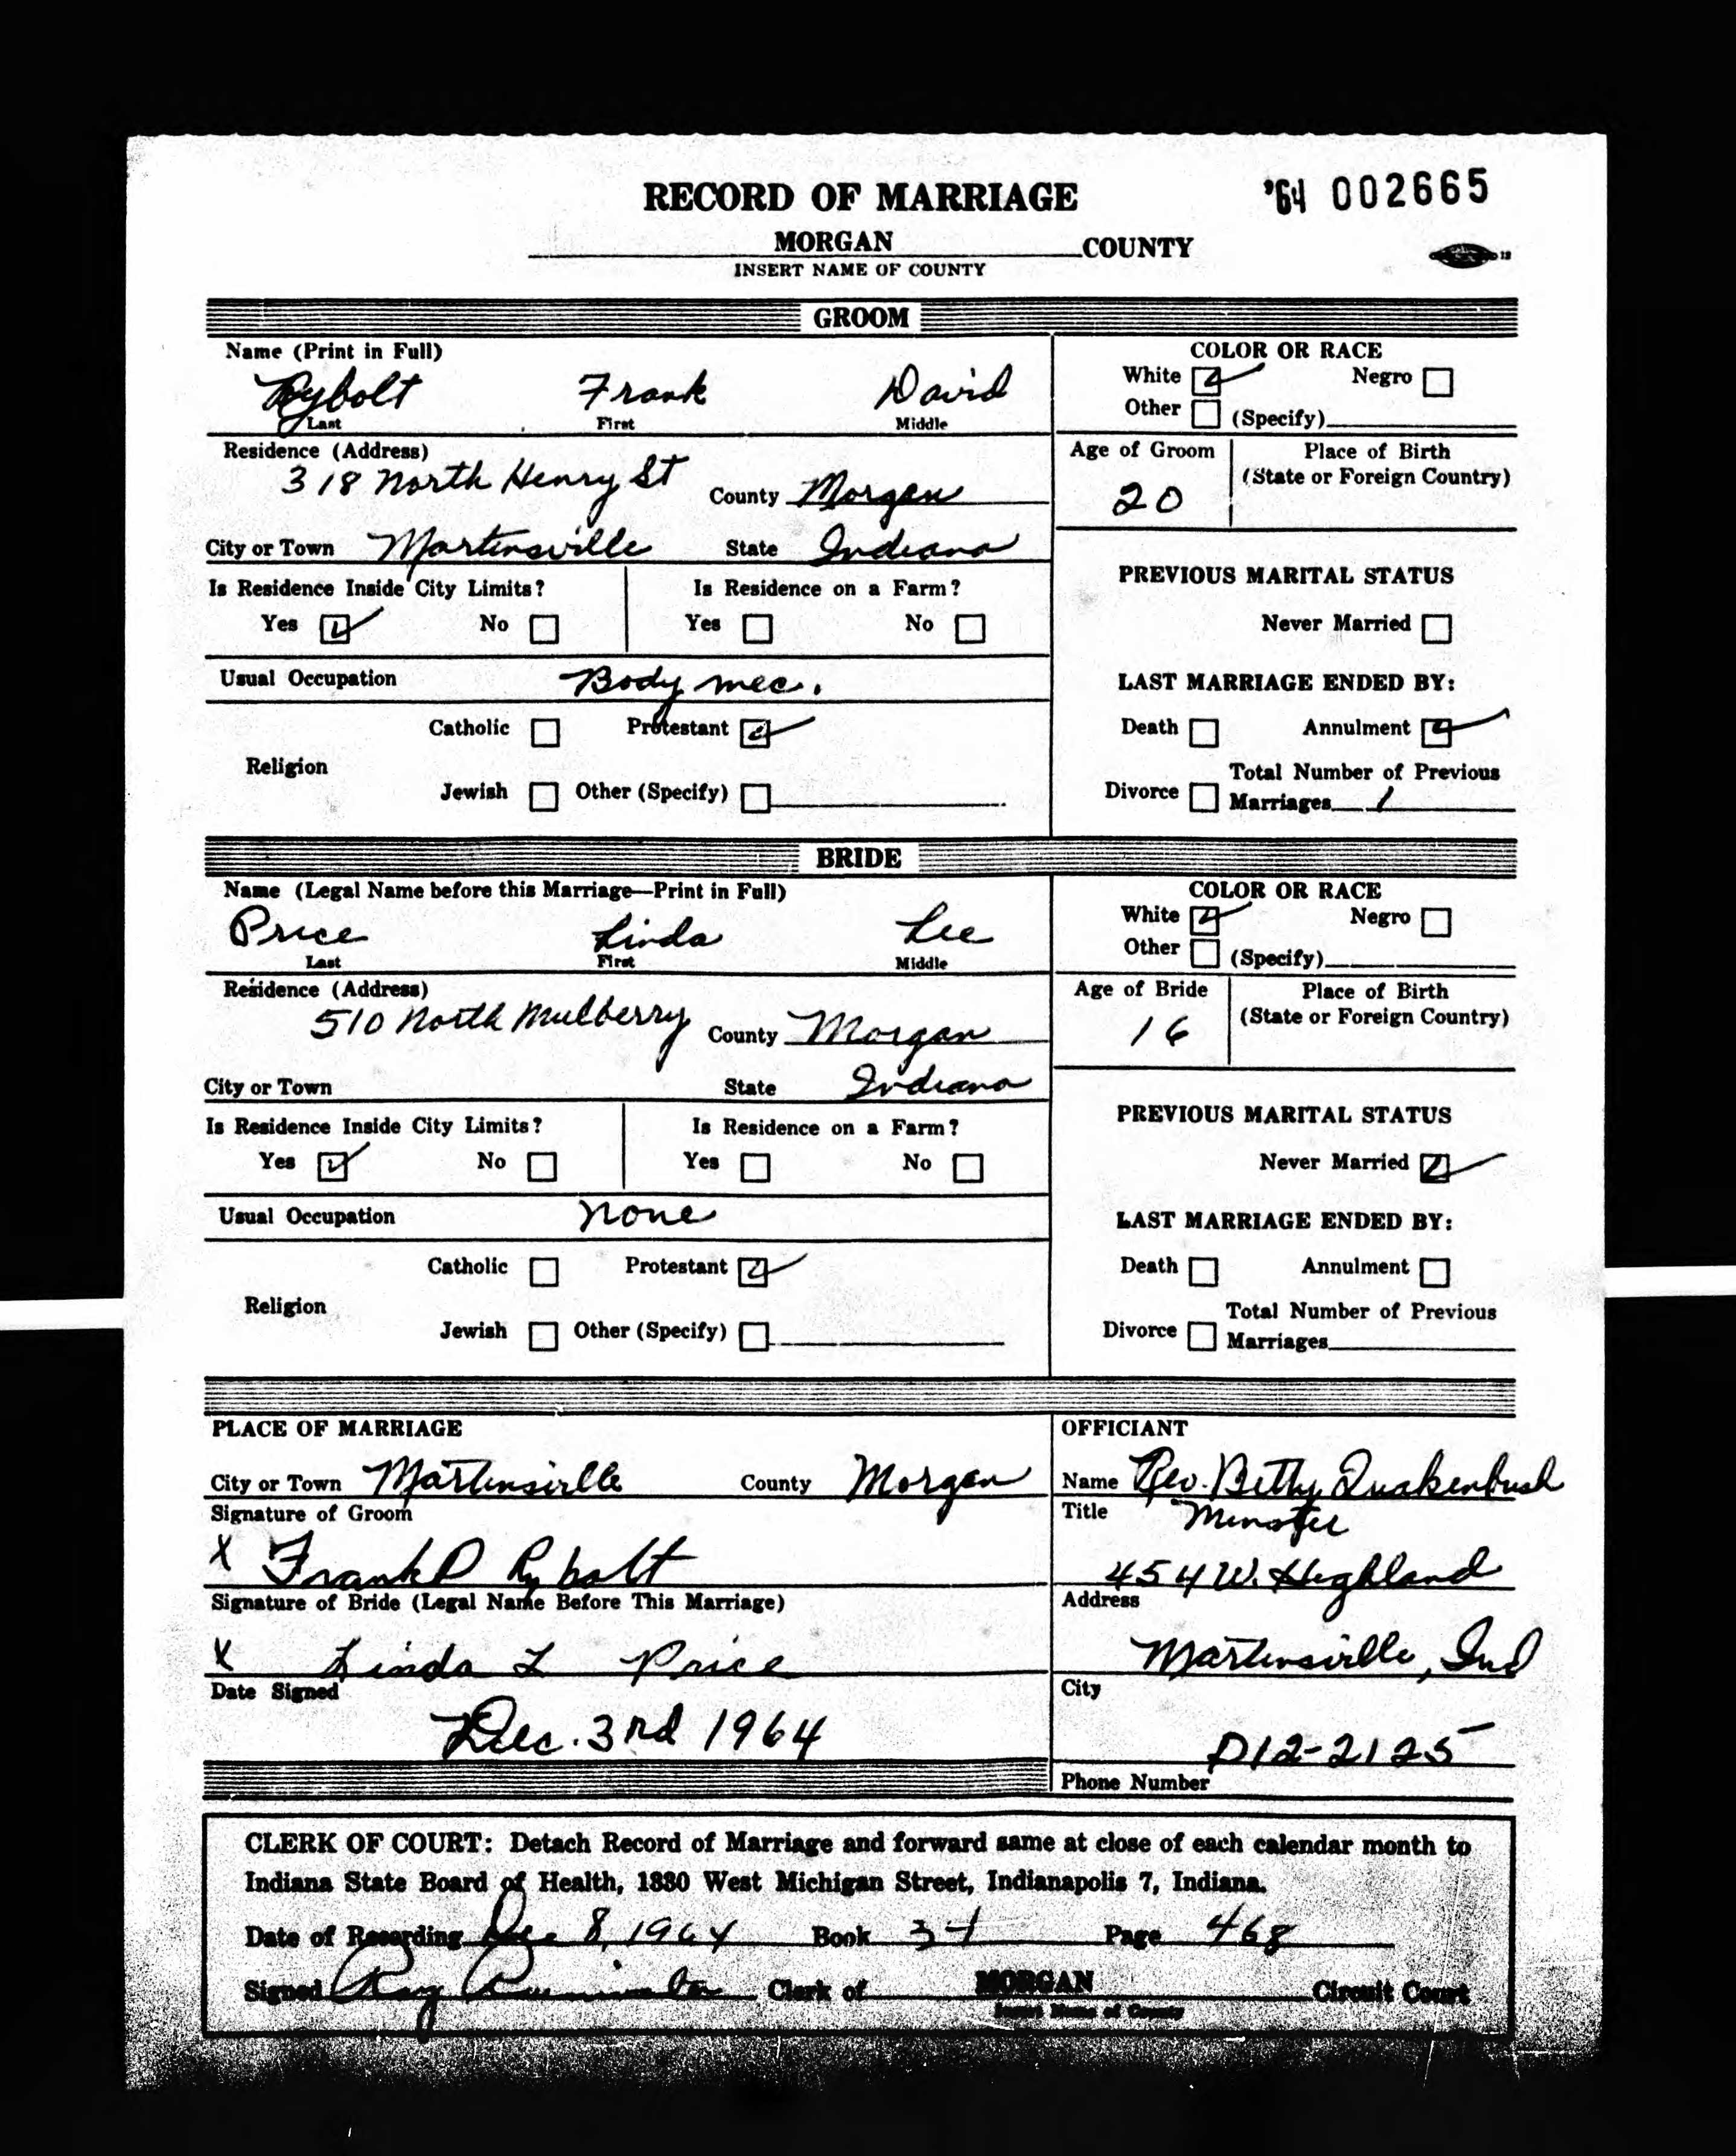 RECORD OF MARRIAGE '64 002665
MORGAN COUNTY
INSERT NAME OF COUNTY
GROOM
Name (Print in Full)
Rybolt Frank David
Last First Middle
COLOR OR RACE
White Negro
Other (Specify)
Residence (Address)
318 North Henry St County Morgan
City or Town Martinsville State Indiana
Age of Groom
20
Place of Birth
(State or Foreign Country)
Is Residence Inside City Limits? Is Residence on a Farm?
Yes No Yes No
PREVIOUS MARITAL STATUS
Never Married
Usual Occupation Body mec.
LAST MARRIAGE ENDED BY:
Catholic Protestant
Religion
Jewish Other (Specify)
Death Annulment
Total Number of Previous
Divorce Marriages 1
BRIDE
Name (Legal Name before this Marriage—Print in Full)
Price Linda Lee
Last First Middle
COLOR OR RACE
White Negro
Other (Specify)
Residence (Address)
510 North Mulberry County Morgan
City or Town State Indiana
Age of Bride
16
Place of Birth
(State or Foreign Country)
Is Residence Inside City Limits? Is Residence on a Farm?
Yes No Yes No
PREVIOUS MARITAL STATUS
Never Married
Usual Occupation None
LAST MARRIAGE ENDED BY:
Catholic Protestant
Religion
Jewish Other (Specify)
Death Annulment
Total Number of Previous
Divorce Marriages
PLACE OF MARRIAGE
City or Town Martinsville County Morgan
Signature of Groom
X Frank D Rybolt
Signature of Bride (Legal Name Before This Marriage)
X Linda L Price
Date Signed
Dec. 3rd 1964
OFFICIANT
Name Rev. Betty Quakenbush
Title Minster
454 W. Highland
Address
Martinsville, Ind
City
DI2-2125
Phone Number
CLERK OF COURT: Detach Record of Marriage and forward same at close of each calendar month to
Indiana State Board of Health, 1330 West Michigan Street, Indianapolis 7, Indiana.
Date of Recording Dec 8, 1964 Book 34 Page 468
Signed Ray Clerk of MORGAN Circuit Court
Insert Name of County